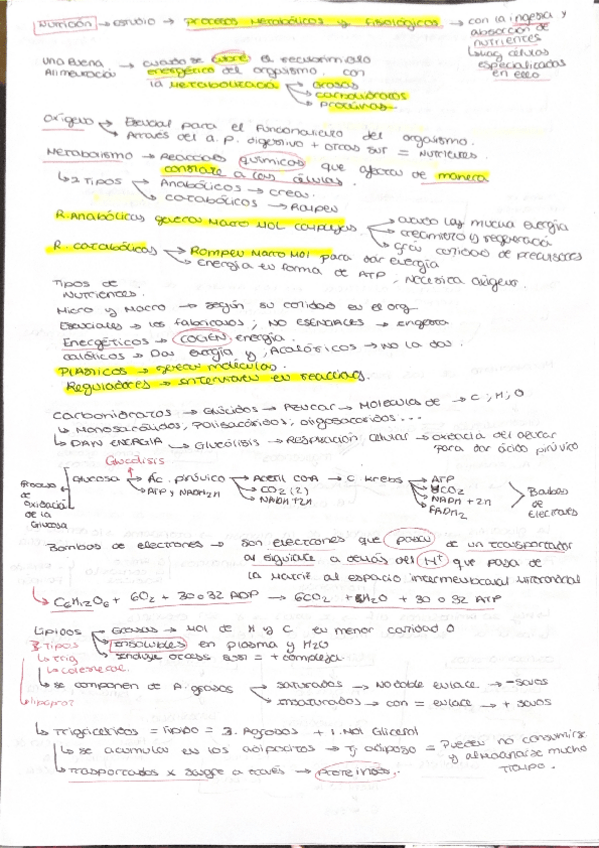 Nutrición → ESTUDIO → procesos Metabólicos y fisiológicos. → con la ingesta y absorción de nutrientes
↳ Hay células especializadas en ello
una Buena Alimentación → cuando se cubre el requerimiento energético del organismo. con la Metabolización
→ Grasas
→ carbohidratos
→ proteinas
→ Esencial para el funcionamiento del organismo.
→ A través del a.p. digestivo + otras sust = Nutrientes.
Metabolismo → Reacciones químicas que afectan de manera constante a las células.
↳ 2 TIPOS → Anabólicos → crean
→ catabólicos → Rompen
R. Anabólicas generan Macro MOL complejas.
→ crecimiento y regeneración
→ Gran cantidad de precursores
R. catabólicas → Rompen Macro Mol para dar energía
→ Energía en forma de ATP, necesita oxígeno.
Tipos de Nutrientes.
Micro y Macro → según su cantidad en el org
Esenciales → los fabricamos; NO ESENCIALES → ingesta
Energéticos → energía.
calóricos → Dan energía y, Acalóricos → No la dan
PLásticos → generan moléculas.
Reguladores → intervienen en reacciones.
Carbohidratos → Glúcidos → Azucar → Moléculas de → C, H, O
↳ Monosacáridos, polisacáridos, oligosacaridos...
↳ DAN ENERGIA → Glucólisis → Respiración celular → oxidación del azucar para dar ácido pirúvico
Glucolisis
Proceso de oxidación de la Glucosa
Glucosa → Ác. pirúvico → Acetil COA → C. krebs → ATP
→ ATP y NADH2n
→ CO2 (2)
→ NADH+2n
→ CO2
→ NADH + 2n
→ FADH2
Bombas de Electrones
Bombas de electrones → son electrones que pasan de un transportador al siguiente a través del H+ que pasa de la Matriz al espacio intermembranal mitocondrial
↳ C6H12O6 + 6O2 + 30 o 32 ADP → 6CO2 + H2O + 30 o 32 ATP
Lípidos → Grasas → Mol de H y C en menor cantidad O
→ insolubles en plasma y H2O
3 Tipos
↳ trig
↳ colesterol.
↳ lipopro?
↳ se componen de A. grasos → saturados → No doble enlace → - sanos
→ insaturados → con = enlace → + sanos
↳ Trigliceridos = lípido = 3. A grasos + 1. Mol Glicerol
↳ se acumulan en los adipocitos → Tj adiposo = Pueden no consumirse y almacenarse mucho tiempo.
↳ Trasportados x sangre a través → proteinas.